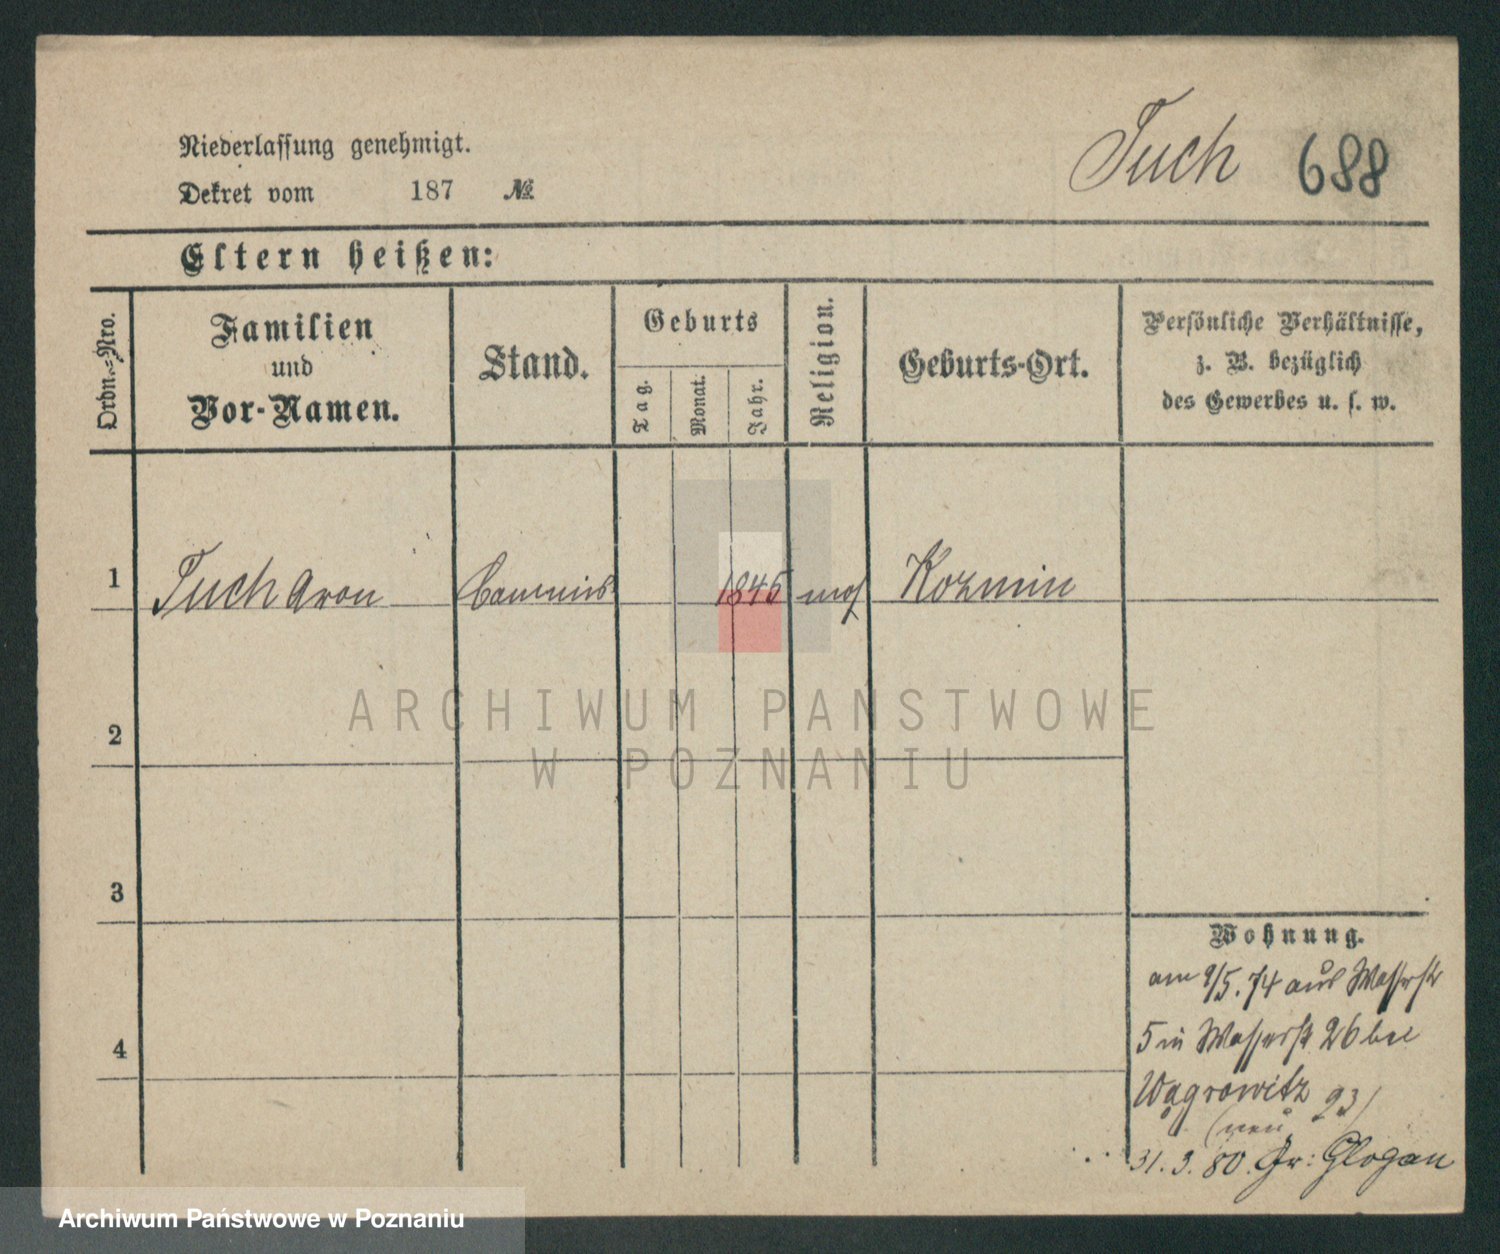 Niederlassung genehmigt.
Dekret vom 187 №
Tuch 688
Eltern heißen:
Ordn.-Nro.
Familien
und
Vor-Namen.
Stand.
Geburts
Tag.
Monat.
Jahr.
Religion.
Geburts-Ort.
Persönliche Verhältnisse,
z. B. bezüglich
des Gewerbes u. s. w.
1 Tuch Aron Commis 1845 mos Kozmin
2
3
4
Wohnung.
am 9/5. 74 aus Wasserstr
5 in Wasserstr 26 bei
Wagrowitz 23/
(neu
31. 3. 80. Gr: Glogau
ARCHIWUM PAŃSTWOWE
W POZNANIU
Archiwum Państwowe w Poznaniu